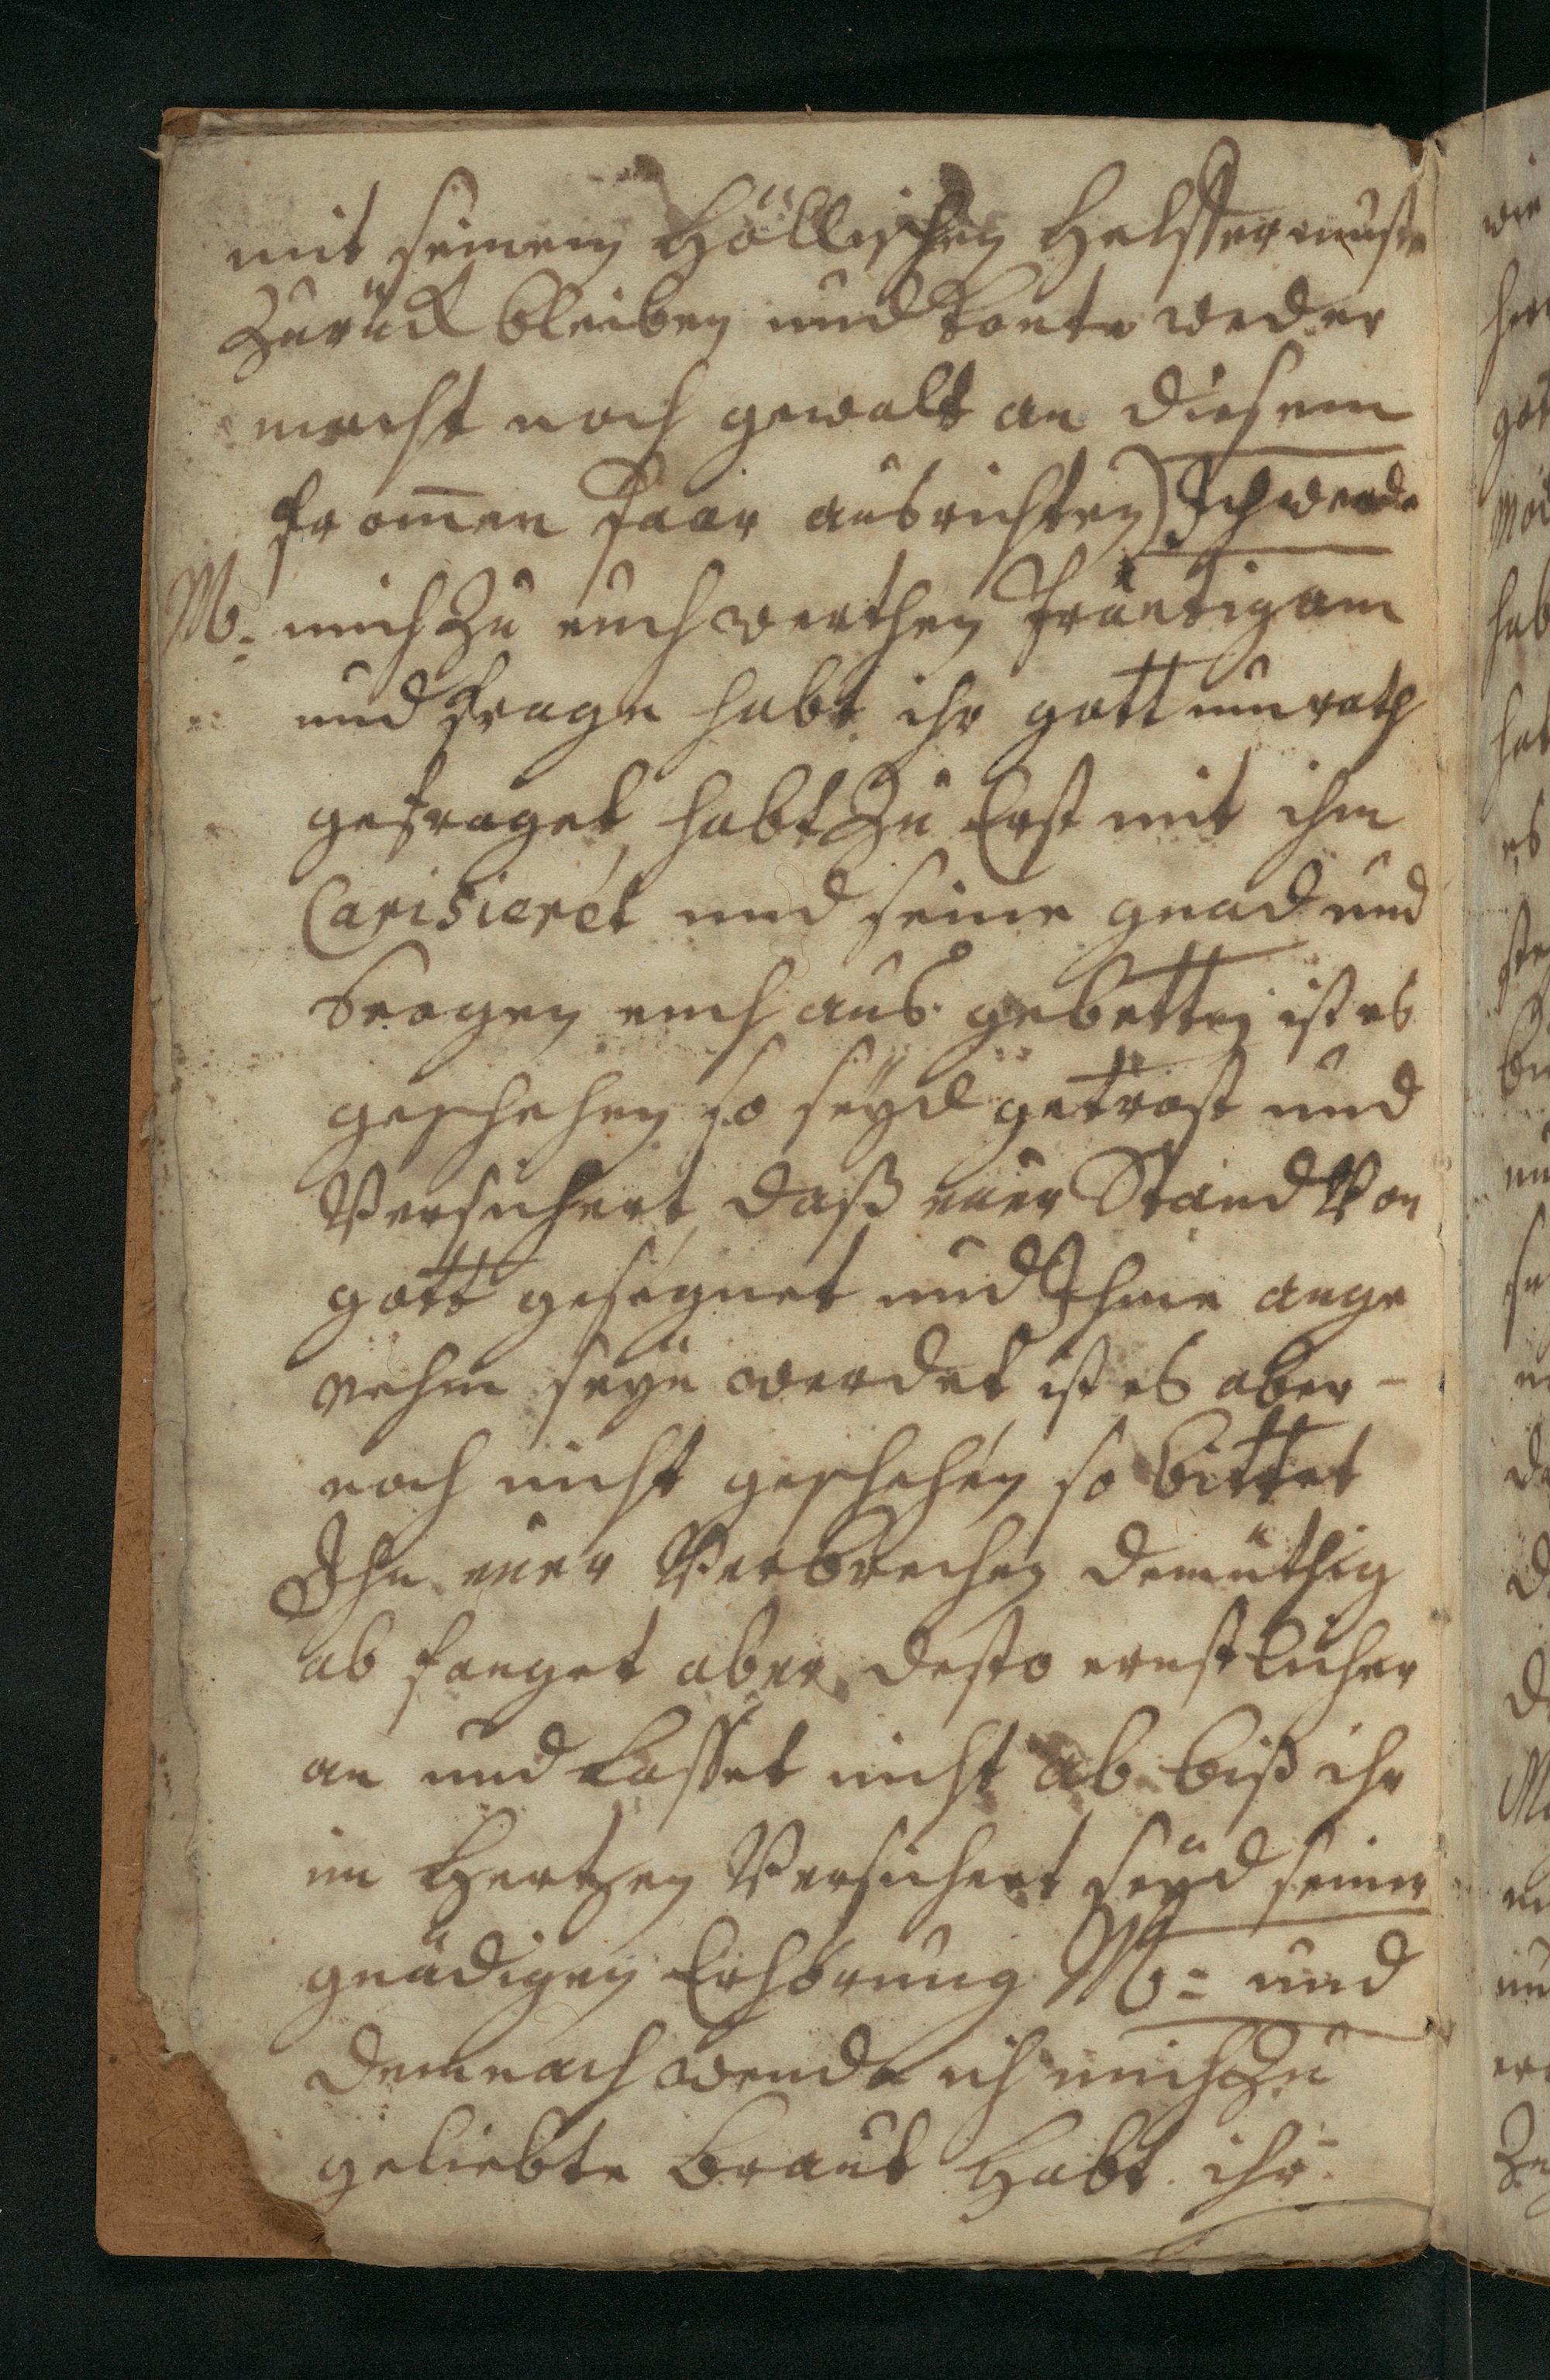 mit seinem Höllischen Helffer muste
Zurück bleiben und konte weder
macht noch gewalt an diesem
frommen Paar ausrichten) Ich wende
M: mich Zu euch werthen Bräutigam
und frage habt ihr gott um rath
gefraget, habt Zu Erst mit ihm
Carisieret und seine gnad und
Seegen euch aus gebetten ist es
geschehen so seyd getrost und
Versichert, daß euer Stand Von
gott gesegnet und Ihme ange
nehm seyn werdet ist es aber -
noch nicht geschehen so bittet
Ihn euer Verbrechen demüthig
ab fanget aber desto ernstlicher
an und Lasset nicht ab biß ihr
im Hertzen Versichert seyd seiner
gnädigen Erhörung M: und
demnach wende ich mich Zu
geliebte Braut Habt ihr